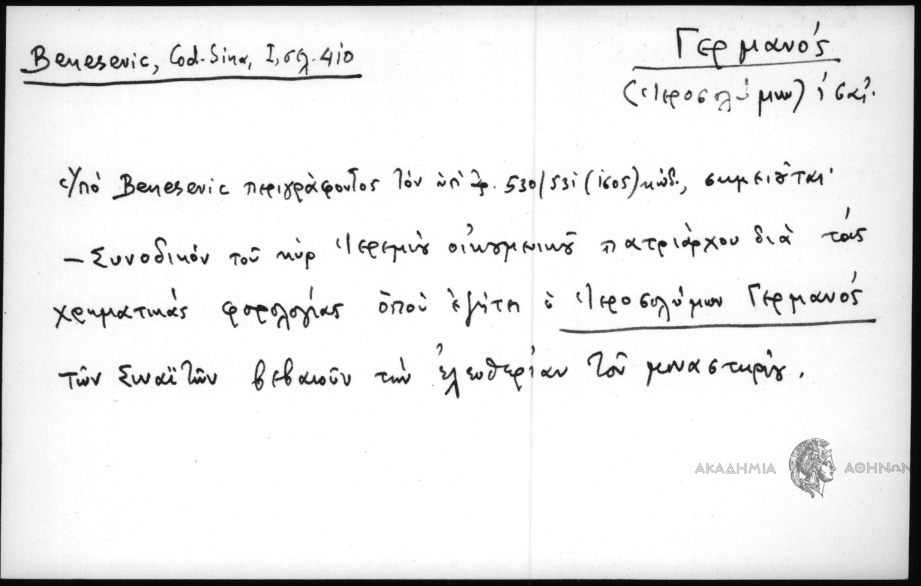 Benesevic, Cod-Sina, I, σελ. 410
Γερμανός
(Ἱεροσολύμων) ισαι.
Ὑπό Benesevic περιγράφοντος τόν ὑπ' ἀρ. 530/531 (ισος) κώδ., σημειοῦται·
– Συνοδικόν τοῦ κύρ Ἱερεμίου οἰκουμενικοῦ πατριάρχου διὰ τάς
χρηματικάς φορολογίας ὁποῦ ἐζήτει ὁ Ἱεροσολύμων Γερμανός
τῶν Σιναϊτῶν βεβαιοῦν τήν ἐλευθερίαν τοῦ μοναστηρίου.
ΑΚΑΔΗΜΙΑ ΑΘΗΝΩΝ